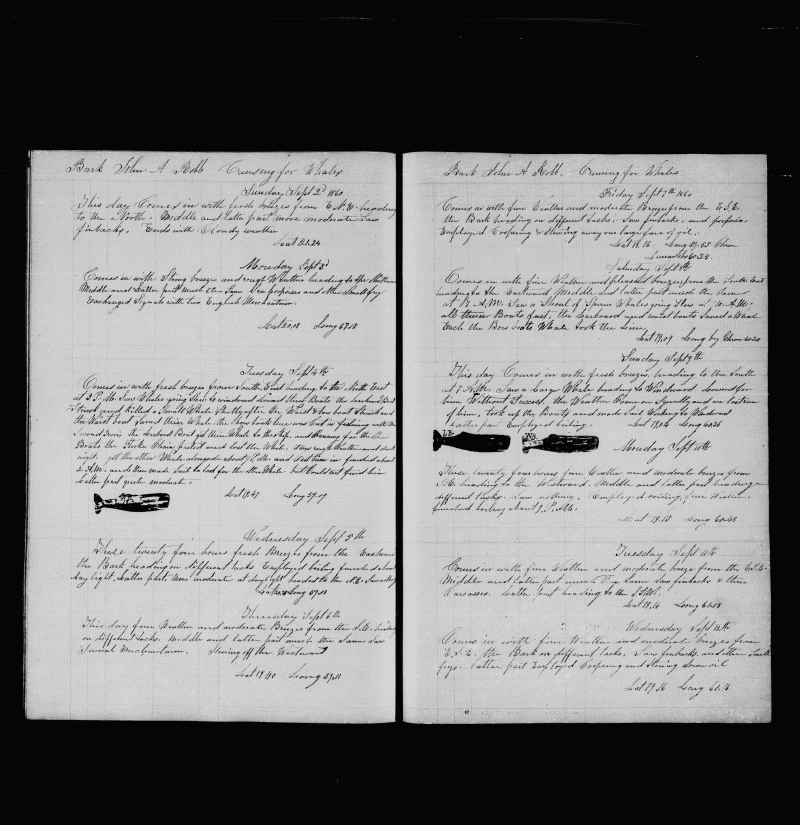 Bark John A Robb Cruising for Whales
Sunday Sept 2d 1860
This day Comes in with fresh breezes from E.N.E. heading
to the North. Middle and latter part more moderate Saw
finbacks. Ends with Cloudy weather
Lat 21.24
Monday Sept 3d
Comes in with Strong breeze and rough Weather heading to the Northward
Middle and Latter part much the Same Saw porpoises and other Small fry
Exchanged Signals with two English Merchantmen.
Lat 20.08 Long 57.15
Tuesday Sept 4th
Comes in with fresh breezes from South East heading to the North East
at 3 P.M. Saw Whales going Slow to windward lowered three Boats the Larboard Boat
Struck and Killed a Small Whale Shortly after the Waist & bow boat Struck and
the Waist boat Saved their Whale. the Bow boats line was
Second Iron the Larboard Boat got their Whale to the Ship, and
Boats the and lost the Whale. Weather and dark
night. got the other Whale alongside about 7 P.M. and finished about
2 A.M. and then made Sail to look for the other Whale but Could not find him
Latter part quite moderate.
Lat 19.47 Long 59.09
Wednesday Sept 5th
These twenty four hours fresh Breezes from the Eastward
the Bark heading on different tacks Employed boiling finished about
day light. Latter part More moderate at daylight headed to the N.E.
Long 59.08
Thursday Sept 6th
This day fine Weather and moderate Breezes from the S.E. heading
on different tacks. Middle and latter part much the Same Saw
Several Merchantmen. Steering off the Westward
Lat 19.40 Long 59.20
Bark John A Robb. Cruising for Whales
Friday Sept 7th 1860
Comes in with fine Weather and moderate Breezes from the E.S.E.
the Bark heading on different tacks. Saw finbacks, and porpoises,
Employed Coopering & Stowing away our large fare of oil.
Lat 18.16 Long 59.55 Chron
60.25.
Saturday Sept 8th
Comes in with fine Weather and pleasant breezes from the South East
heading to the Eastward Middle and latter part much the Same
at 8 A.M. Saw a Shoal of Sperm Whales going Slow at 10 A.M.
all three Boats fast, the Larboard and waist boats Saved a Whale
Each the Bow boats Whale took the line,
Lat 19.09 Long by Chron 60.20
Sunday Sept 9th
This day Comes in with fresh breezes heading to the South
at 7 A.M. Saw a Large Whale heading to Windward Lowered for
him Without Success, the Weather Came on Squally and we lost run
of him, took up the Boats and made Sail Working to Windward
Latter part Employed boiling. Lat 18.54 Long 60.26
Monday Sept 10th
These twenty four hours fine Weather and moderate breezes from
S.E. heading to the Westward. Middle and latter part heading on
different tacks. Saw nothing. Employed boiling, fine Weather.
finished boiling about 9 P.M.
Lat 19.15 Long 60.48
Tuesday Sept 11th
Comes in with fine Weather and moderate breeze from the E.S.E.
Middle and latter part much the Same Saw finbacks & three
Latter part heading to the
Lat 19.16 Long 61.08
Wednesday Sept 12th
Comes in with fine Weather and moderate breezes from
E.S.E. the Bark on different tacks. Saw finbacks and other Small
frys. Latter part Employed Coopering and Stowing down oil
Lat 19.26 Long 61.18